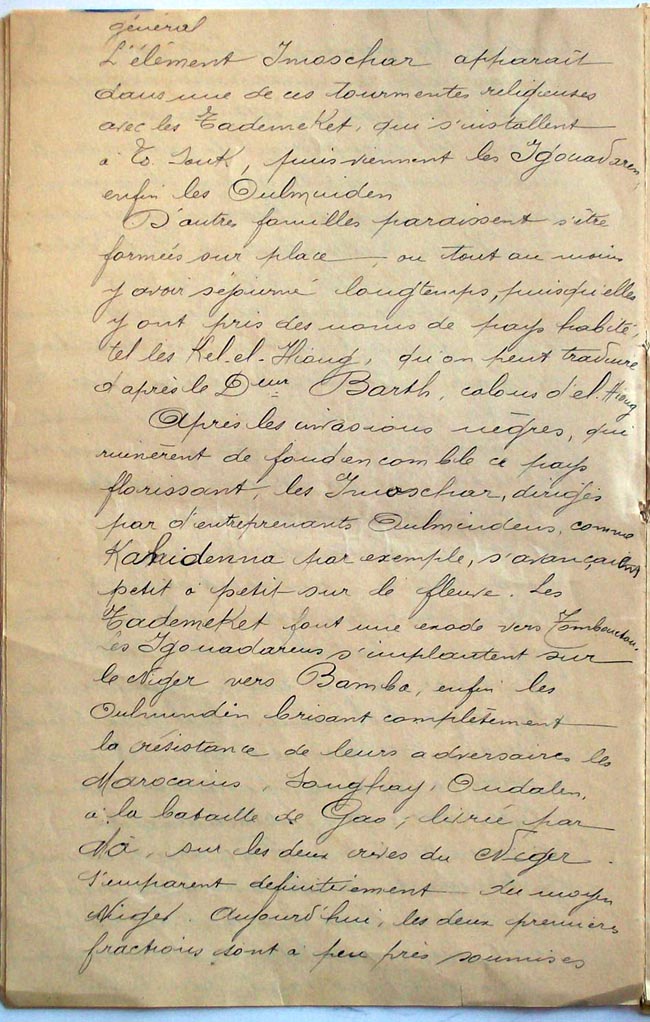 général
L'élément Imoschar apparaît
dans une de ces tourmentes religieuses
avec les Tademeket, qui s'installent
à Es Souk, puis viennent les Igouadaren,
enfin les Oulminden
D'autres familles paraissent s'être
formées sur place — ou tout au moins
y avoir séjourné longtemps, puisqu'elles
y ont pris des noms de pays habité,
tel les Kel-el-Hioug, qu'on peut traduire
d'après le Dteur Barth, colons d'el-Hioug
Après les invasions nègres, qui
ruinèrent de fond en comble ce pays
florissant, les Imoschar, dirigés
par d'entreprenants Oulmindens, comme
Kahidenna par exemple, s'avançaient
petit à petit sur le fleuve. Les
Tademeket font une exode vers Tombouctou.
Les Igouadarens s'implantent sur
le Niger vers Bamba, enfin les
Oulmindin brisant complètement
la résistance de leurs adversaires les
Marocains, Songhay, Oudalen,
à la bataille de Gao, livrée par
sur les deux rives du Niger.
S'emparent définitivement du moyen
Niger. Aujourd'hui, les deux premières
fractions sont à peu près soumises